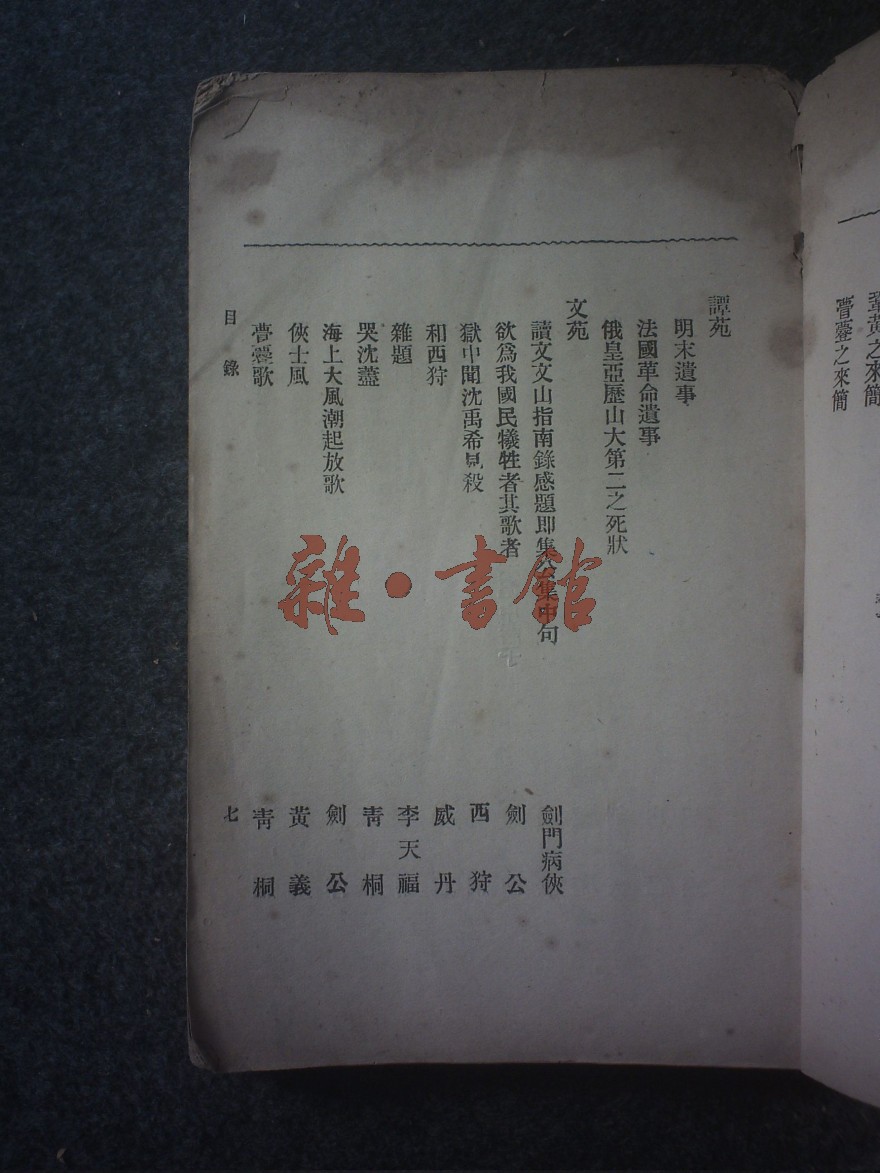 鞏黃之來簡
瞢薹之來簡
譚苑
明末遺事
法國革命遺事
俄皇亞歷山大第二之死狀
文苑
讀文文山指南錄感題即集公集中句 劍門病俠
欲爲我國民犧牲者其歌者 劍公
獄中聞沈禹希見殺 西狩
和西狩 威丹
雜題 李天福
哭沈藎 靑桐
海上大風潮起放歌 劍公
俠士風 黃義
夢蘷歌 靑桐
目錄 七
雜·書館